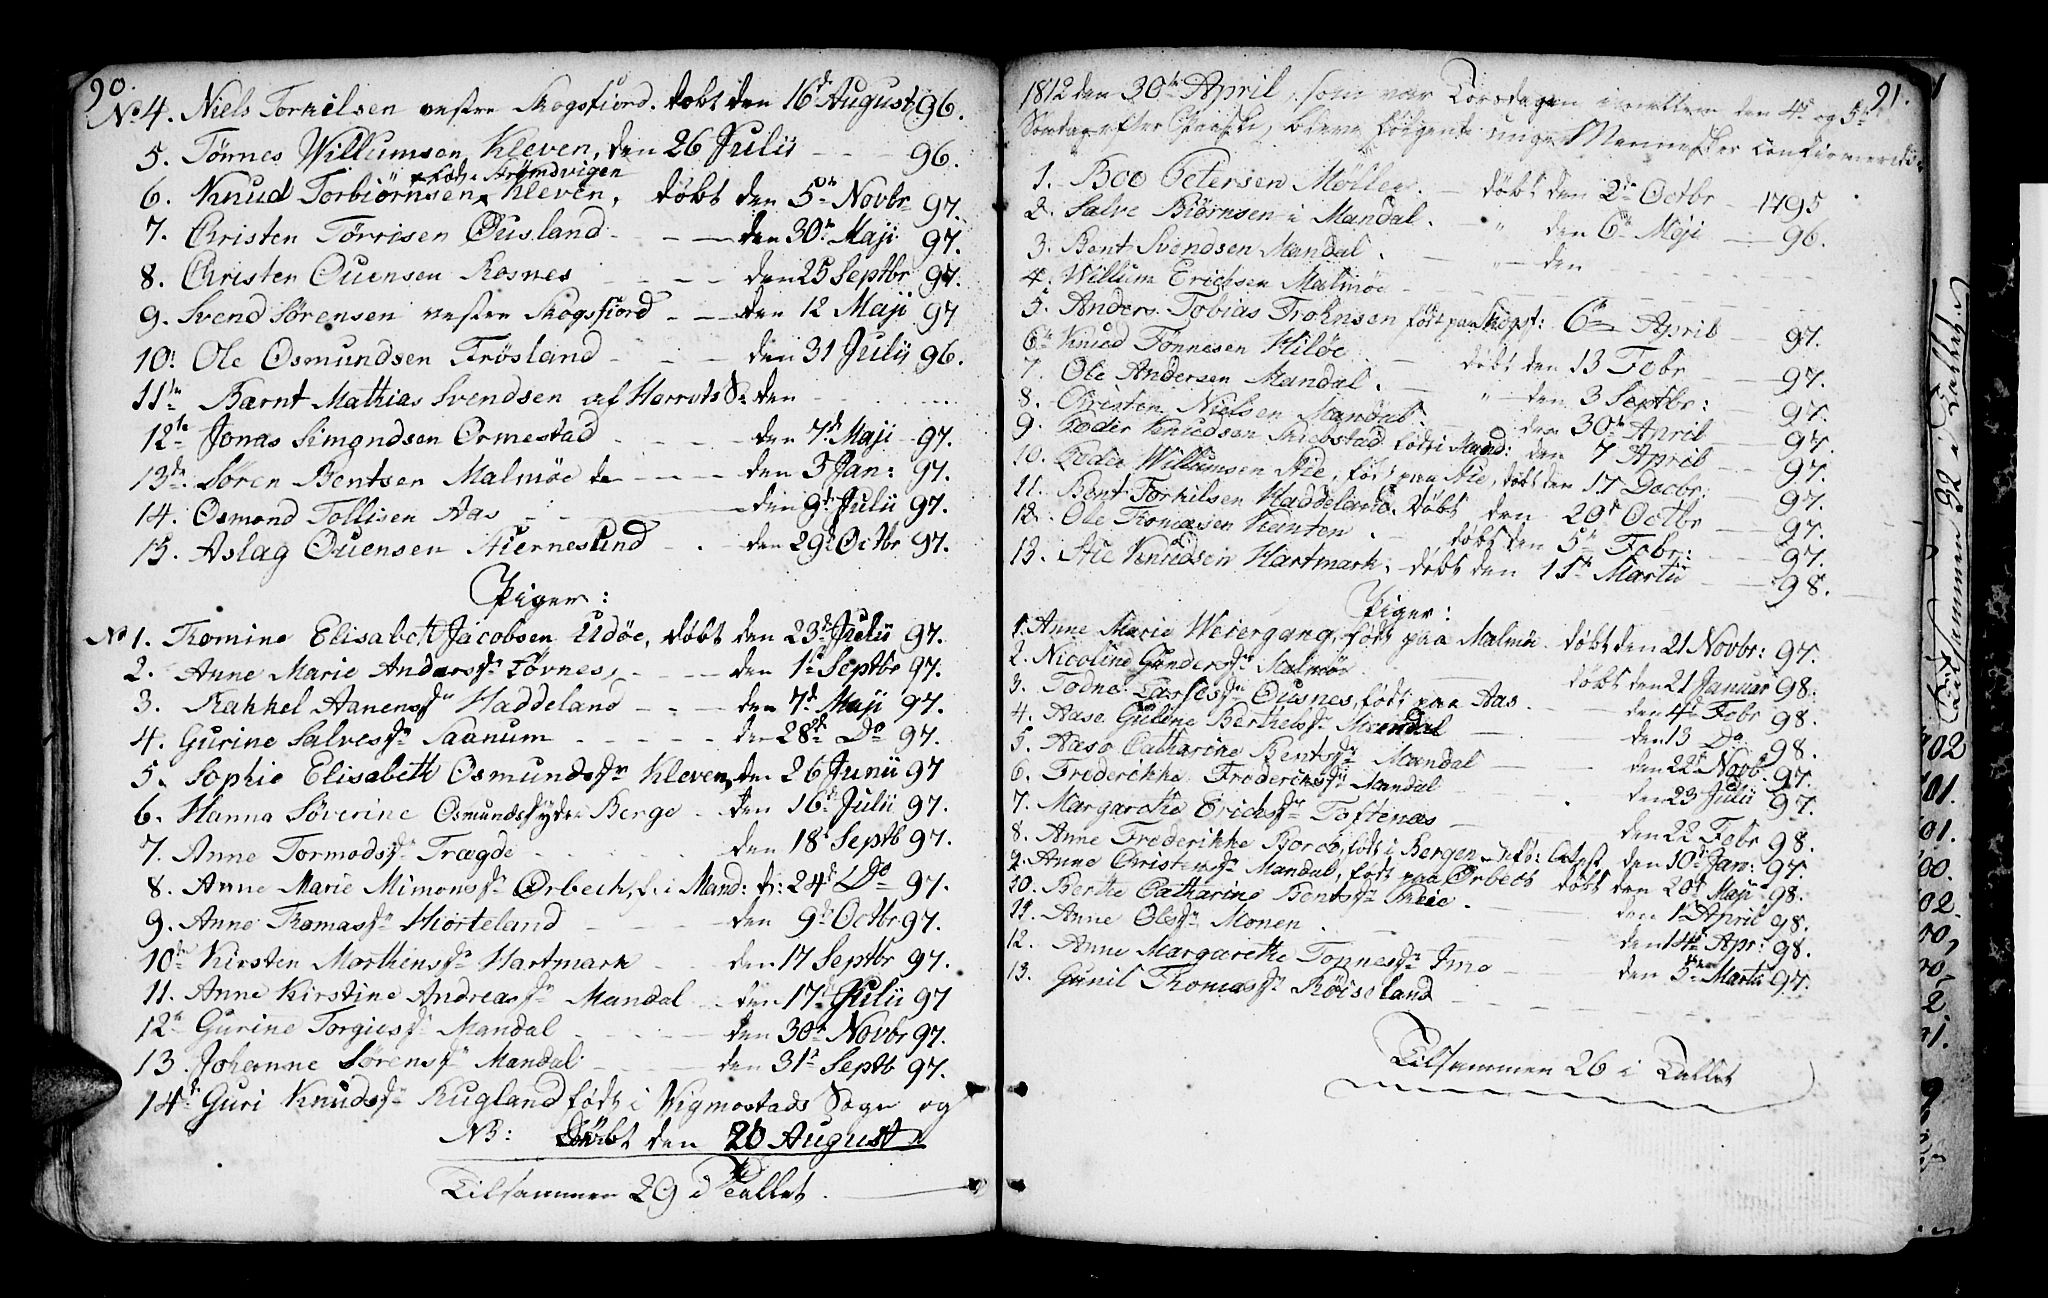 90.
No 4. Niels Torkilsen vestre Skogsfiord. døbt den 16d August 96.
5. Tønnes Willumsen Kleven, den 26 Julii - - 96.
født i Strømdvigen
6. Knud Torbiørnsen Kleven, døbt den 5te Novbr 97.
7. Christen Tørrisen Øusland - - den 30te Maji 97.
8. Christen Ouensen Rosnes - - - den 25 Septbr 97.
9. Svend Sørensen vestre Skogsfiord - - den 12 Maji 97
10. Ole Osmundsen Frøsland - - - den 31 Julii 96.
11te Barnt Mathias Svendsen af Horrets S: den - - -
12te Jonas Simondsen Ormestad - - - den 7de Maji 97.
13de Søren Bentsen Malmøe - - - den 3 Jan: 97.
14. Osmond Tollisen Aas - - den 9d Julii 97.
15. Aslag Ouensen Stiernesund - - den 29d Octbr 97.
Piger:
No 1. Tomine Elisabeth Jacobsen Udøe, døbt den 23d Julii 97.
2. Anne Marie Andersdr Løvnes, - - - den 1te Septbr 97.
3. Rakkel Aanensdr Haddeland - - - den 7de Maji 97.
4. Gurine Salvesdr Saanum - - - - den 28de Do 97.
5. Sophie Elisabeth Osmundsdr Kleven, den 26 Junii 97
6. Hanna Søverine Osmundsdr Berge - den 16d Julii 97.
7. Anne Tormodsdr Trægde - - - den 18d Septb 97.
8. Anne Marie Simonsdr Ørbech, f. i Mand: d: 24d Do 97.
9. Anne Tomasdr Hiorteland - - - den 9d Octbr 97.
10de Kirsten Mortensdr Hartmark - - den 17 Septbr 97.
11. Anne Kirstine Andreasdr Mandal - den 17d Julii 97
12te Gurine Torgiusdr Mandal - - - den 30te Novbr 97.
13. Johanne Sørensdr Mandal - - den 31te Septb 97.
14de Guri Knudsdr Rugland født i Vigmostads Sogn og
NB: Døbt den 20 August
Tilsammen 29 i Tallet.
91.
1812 den 30te April, som var Torsdagen imellem den 4de og 5te
Søndag efter Paaske, bleve følgende unge Mennesker confirmerede:
1. Boo Petersen Møller - døbt den 2de Octbr 1795
2. Salve Biørnsen i Mandal. - " den 6te Maji 96.
3. Bent Svendsen Mandal. - " den
4. Willum Erichsen Malmøe - - -
5. Anders Tobias Trohnsen født paa Skogsf: 6te April 97.
6te Knud Tønnesen Hiløe - døbt den 13 Febr 97.
7. Ole Andersen Mandal. - " den 3 Septbr: 97.
8. Christen Nielsen - den 30te April 97.
9. Peder Knudsen Skiebstad født i Mand: den 7 April 97.
10. Peder Willumsen Stie, født paa Stie, døbt den 17 Decbr: 97.
11. Bent Torkilsen Haddeland. døbt den 20d Octbr 97.
12. Ole Tomesen Kanten. - døbt den 5te Febr: 97.
13. Stie Knudsen Hartmark, døbt den 15te Martii 98.
Piger:
1. Anne Marie Weiergang, født paa Malmø døbt den 21 Novbr: 97.
2. Nicoline Gundersdr Malmøe - døbt den 21 Januar 98.
3. Todne Lassesdr Ousnes, født paa Aas. - den 4de Febr 98.
4. Aase Guline Berthesdr Mandal - den 13 Do 98.
5. Aase Catharine Bentsdr Mandal - den 22d Novb. 97.
6. Frederikke Frederiksdr Mandal - den 23 Julii 97.
7. Margarethe Erichsdr Toftenes - den 22 Febr 98.
8. Anne Frederikke født i Bergen den 10de Jan: 97.
9. Anne Christensdr Mandal, født paa Ørbech døbt den 20d Maji 98.
10. Berthe Catharine Bentsdr - den 1 April 98.
11. Anne Olesdr Monen - - den 14d Apr: 98.
12. Anne Margarethe Tønnesdr Ime - den 5te Martii 97.
13. Gunil Tomasdr Røiseland - - -
Tilsammen 26 i Tallet